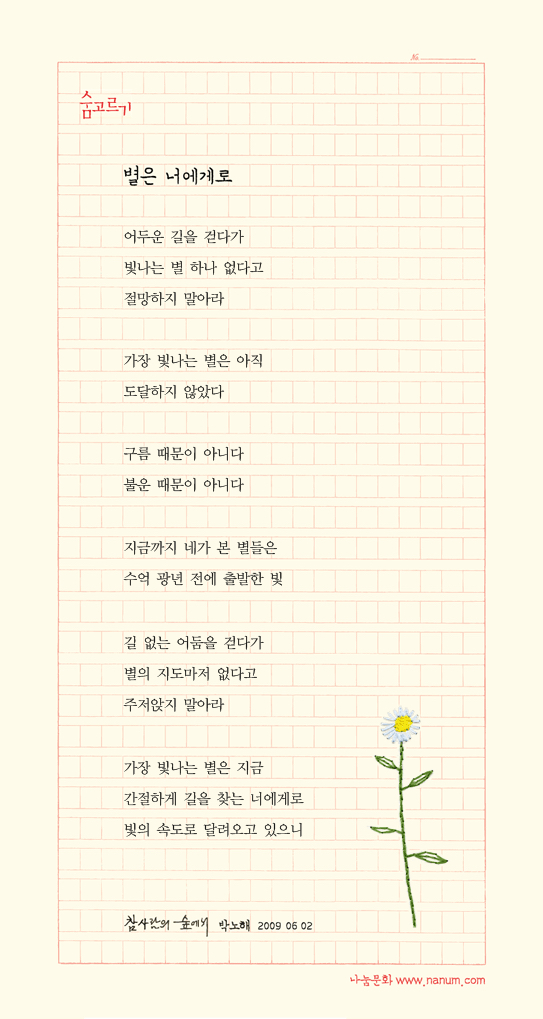 №
숨고르기
별은 너에게로
어두운 길을 걷다가
빛나는 별 하나 없다고
절망하지 말아라
가장 빛나는 별은 아직
도달하지 않았다
구름 때문이 아니다
불운 때문이 아니다
지금까지 네가 본 별들은
수억 광년 전에 출발한 빛
길 없는 어둠을 걷다가
별의 지도마저 없다고
주저앉지 말아라
가장 빛나는 별은 지금
간절하게 길을 찾는 너에게로
빛의 속도로 달려오고 있으니
참사람의 숲에서 박노해 2009 06 02
나눔문화 www.nanum.com